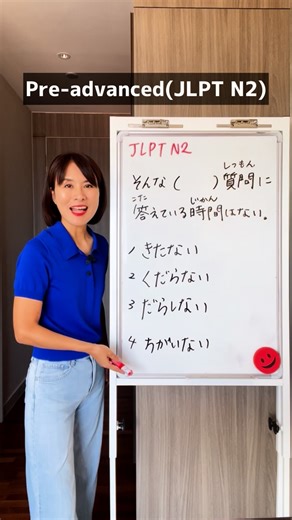 Pre-advanced(JLPT N2)
JLPT N2
しつもん
そんな(　　)質問に
こた　じかん
答えている時間はない。
1 きたない
2 くだらない
3 だらしない
4 ちがいない